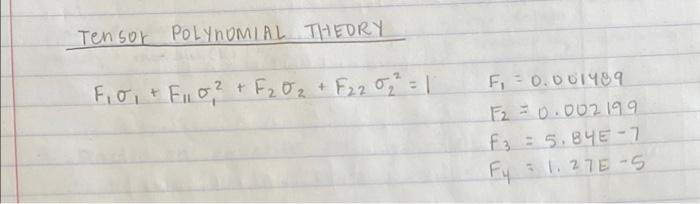 Tensor POLYNOMIAL THEORY
F₁σ₁ + F₁₁σ₁² + F₂σ₂ + F₂₂σ₂² = 1
F₁ = 0.001489
F₂ = 0.002199
F₃ = 5.84E-7
F₄ = 1.27E-5